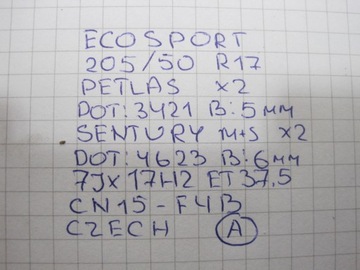 ECOSPORT
205/50 R17
PETLAS x2
DOT: 3421 B: 5 мм
SENTURY M+S x2
DOT: 4623 B: 6 мм
7Jx17H2 ET37,5
CN15-F4B
CZECH A